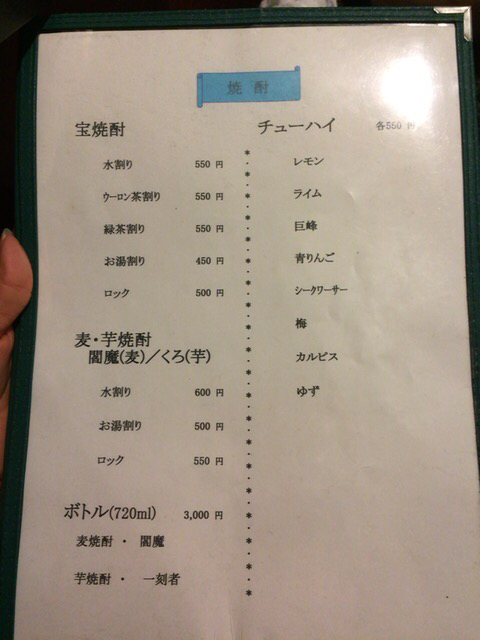 焼 酎
宝焼酎
水割り 550 円
ウーロン茶割り 550 円
緑茶割り 550 円
お湯割り 450 円
ロック 500 円
麦・芋焼酎
閻魔(麦)／くろ(芋)
水割り 600 円
お湯割り 500 円
ロック 550 円
ボトル(720ml) 3,000 円
麦焼酎 ・ 閻魔
芋焼酎 ・ 一刻者
チューハイ 各550 円
レモン
ライム
巨峰
青りんご
シークワーサー
梅
カルピス
ゆず